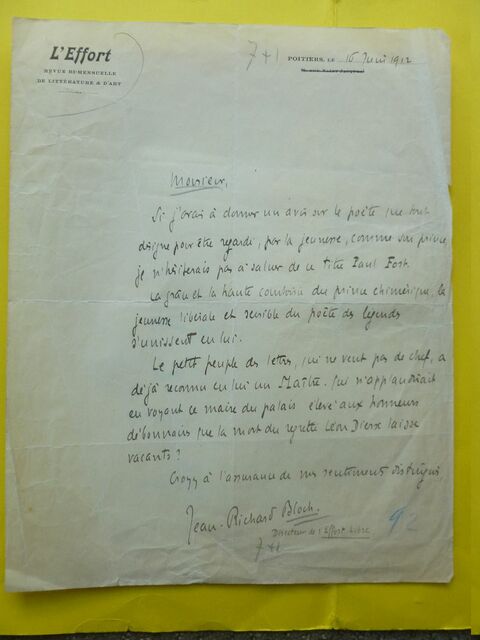 L'Effort
REVUE BI-MENSUELLE
DE LITTÉRATURE & D'ART
7+1
POITIERS, LE 16 Juin 1912
Monsieur,
Si j'avais à donner un avis sur le poète que tout
désigne pour être regardé, par la jeunesse, comme son prince,
je n'hésiterais pas à saluer de ce titre Paul Fort.
La grâce et la haute courtoisie du prince chimérique, la
jeunesse libérale et sensible du poète des légendes
s'unissent en lui.
Le petit peuple des lettres, qui ne veut pas de chef, a
déjà reconnu en lui un Maître. Qui n'applaudirait
en voyant ce maire du palais élevé aux honneurs
débonnaires que la mort du regretté Léon Dierx laisse
vacants ?
Croyez à l'assurance de mes sentiments distingués
Jean-Richard Bloch.
Directeur de l'Effort Libre
92
7+1